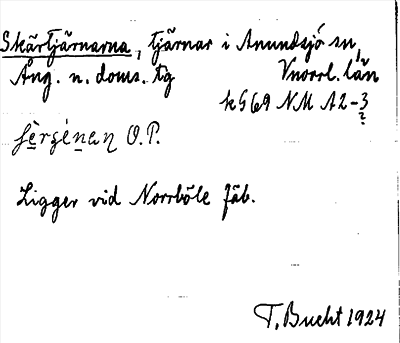 Skärtjärnarna, tjärnar i Anundsjö sn,
Ång. n. doms. tg Vnorrl. län
k 569 NM A2-3
?
O.P.
Ligger vid Norrböle fäb.
T. Bucht 1924